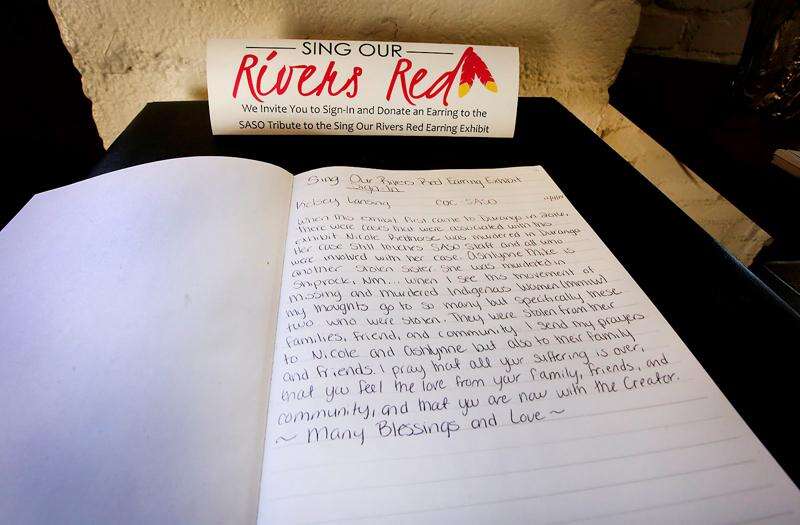 SING OUR
Rivers Red
We Invite You to Sign-In and Donate an Earring to the
SASO Tribute to the Sing Our Rivers Red Earring Exhibit
Sing Our Rivers Red Earring Exhibit
Sign In
Kelsey Lansing COC-SASO
When this exhibit first came to Durango in
there were cases that were associated with this
exhibit. Nicole Redhouse was murdered in Durango
Her case still touches SASO staff and all who
were involved with her case. Ashlynne Mike is
another Stolen Sister. She was murdered in
Shiprock, NM... when I see this movement of
missing and murdered Indigenous Women (mmiw)
my thoughts go to so many but specifically these
two who were stolen. They were stolen from their
families, friend, and community. I send my prayers
to Nicole and Ashlynne but also to their family
and friends. I pray that all your suffering is over,
that you feel the love from your family, friends, and
community, and that you are now with the Creator.
~ Many Blessings and Love ~